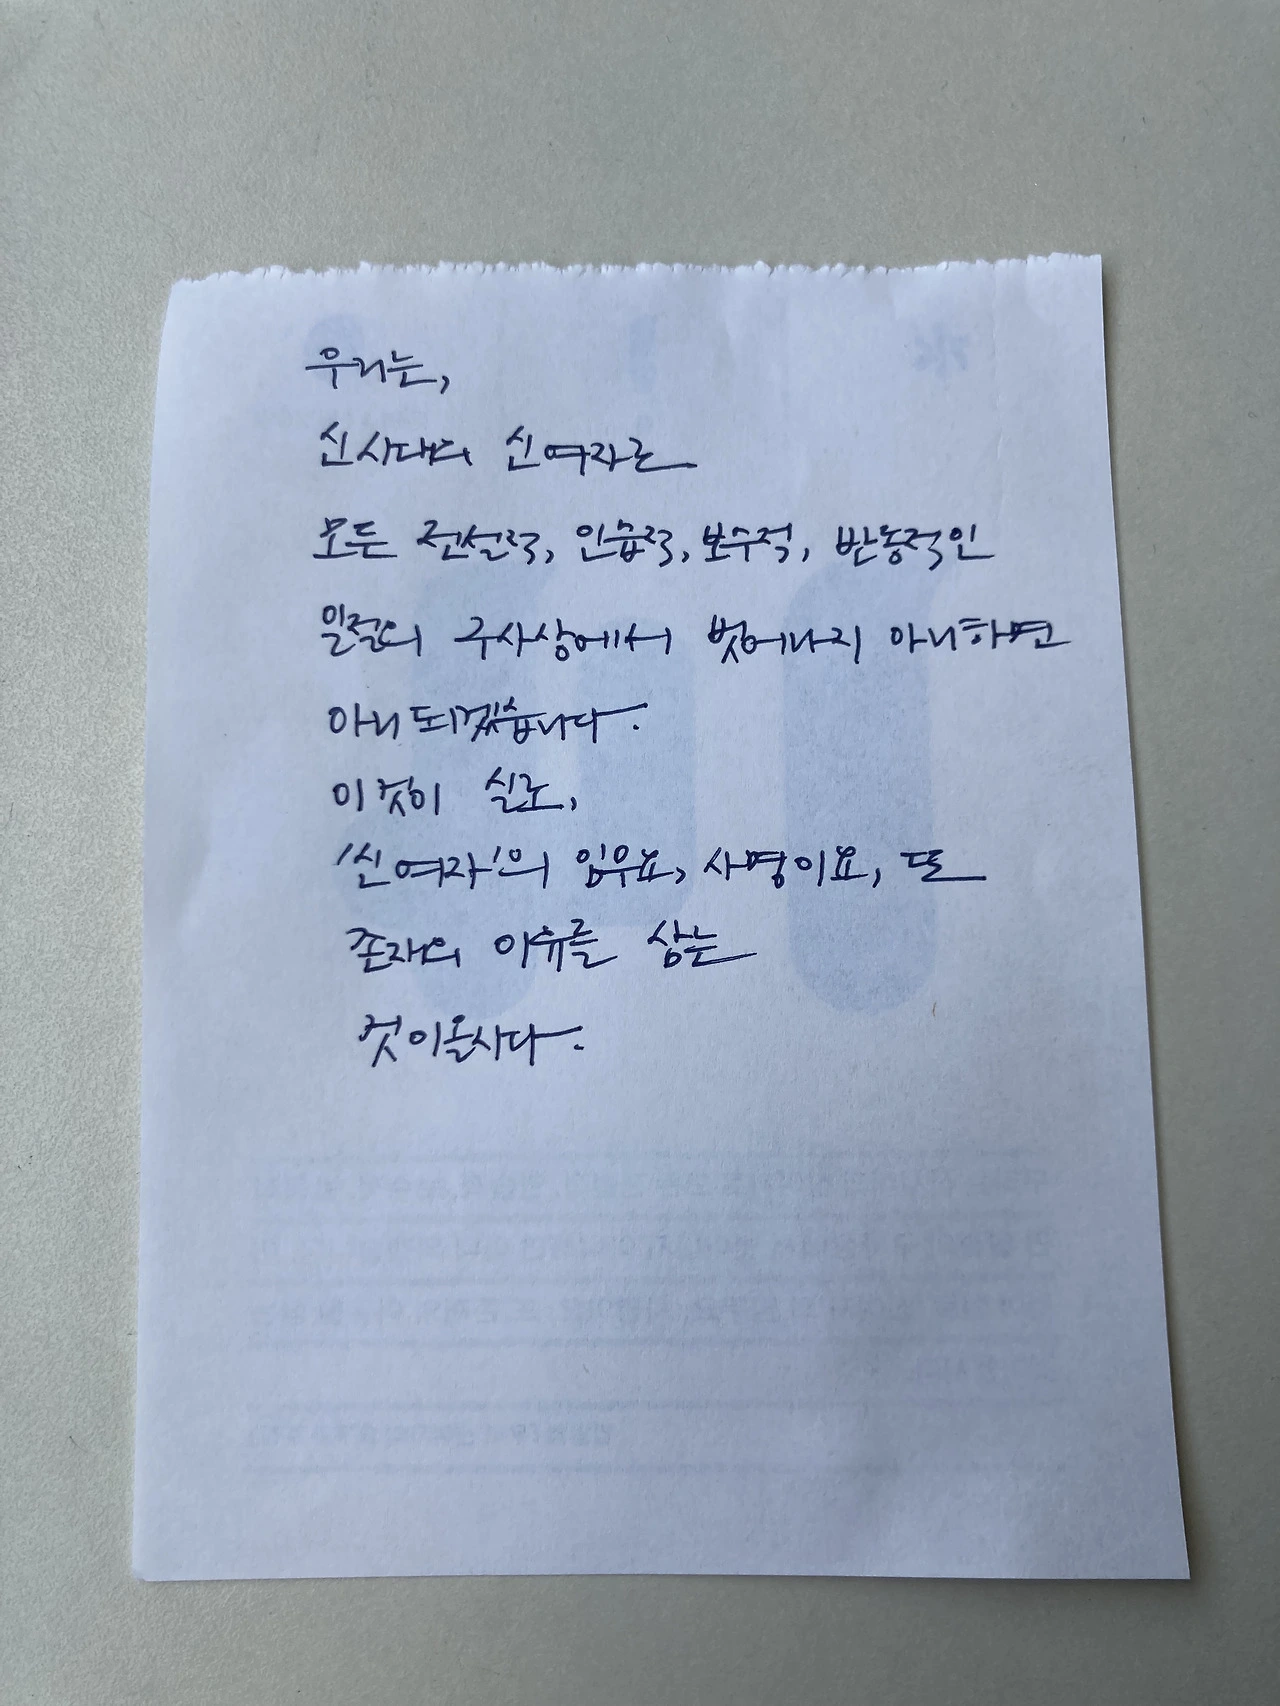 우리는,
신시대의 신여자로
모든 전설적, 인습적, 보수적, 반동적인
일절의 구사상에서 벗어나지 아니하면
아니되겠습니다.
이것이 실로,
'신여자'의 임무요, 사명이요, 또
존재의 이유를 삼는
것이올시다.